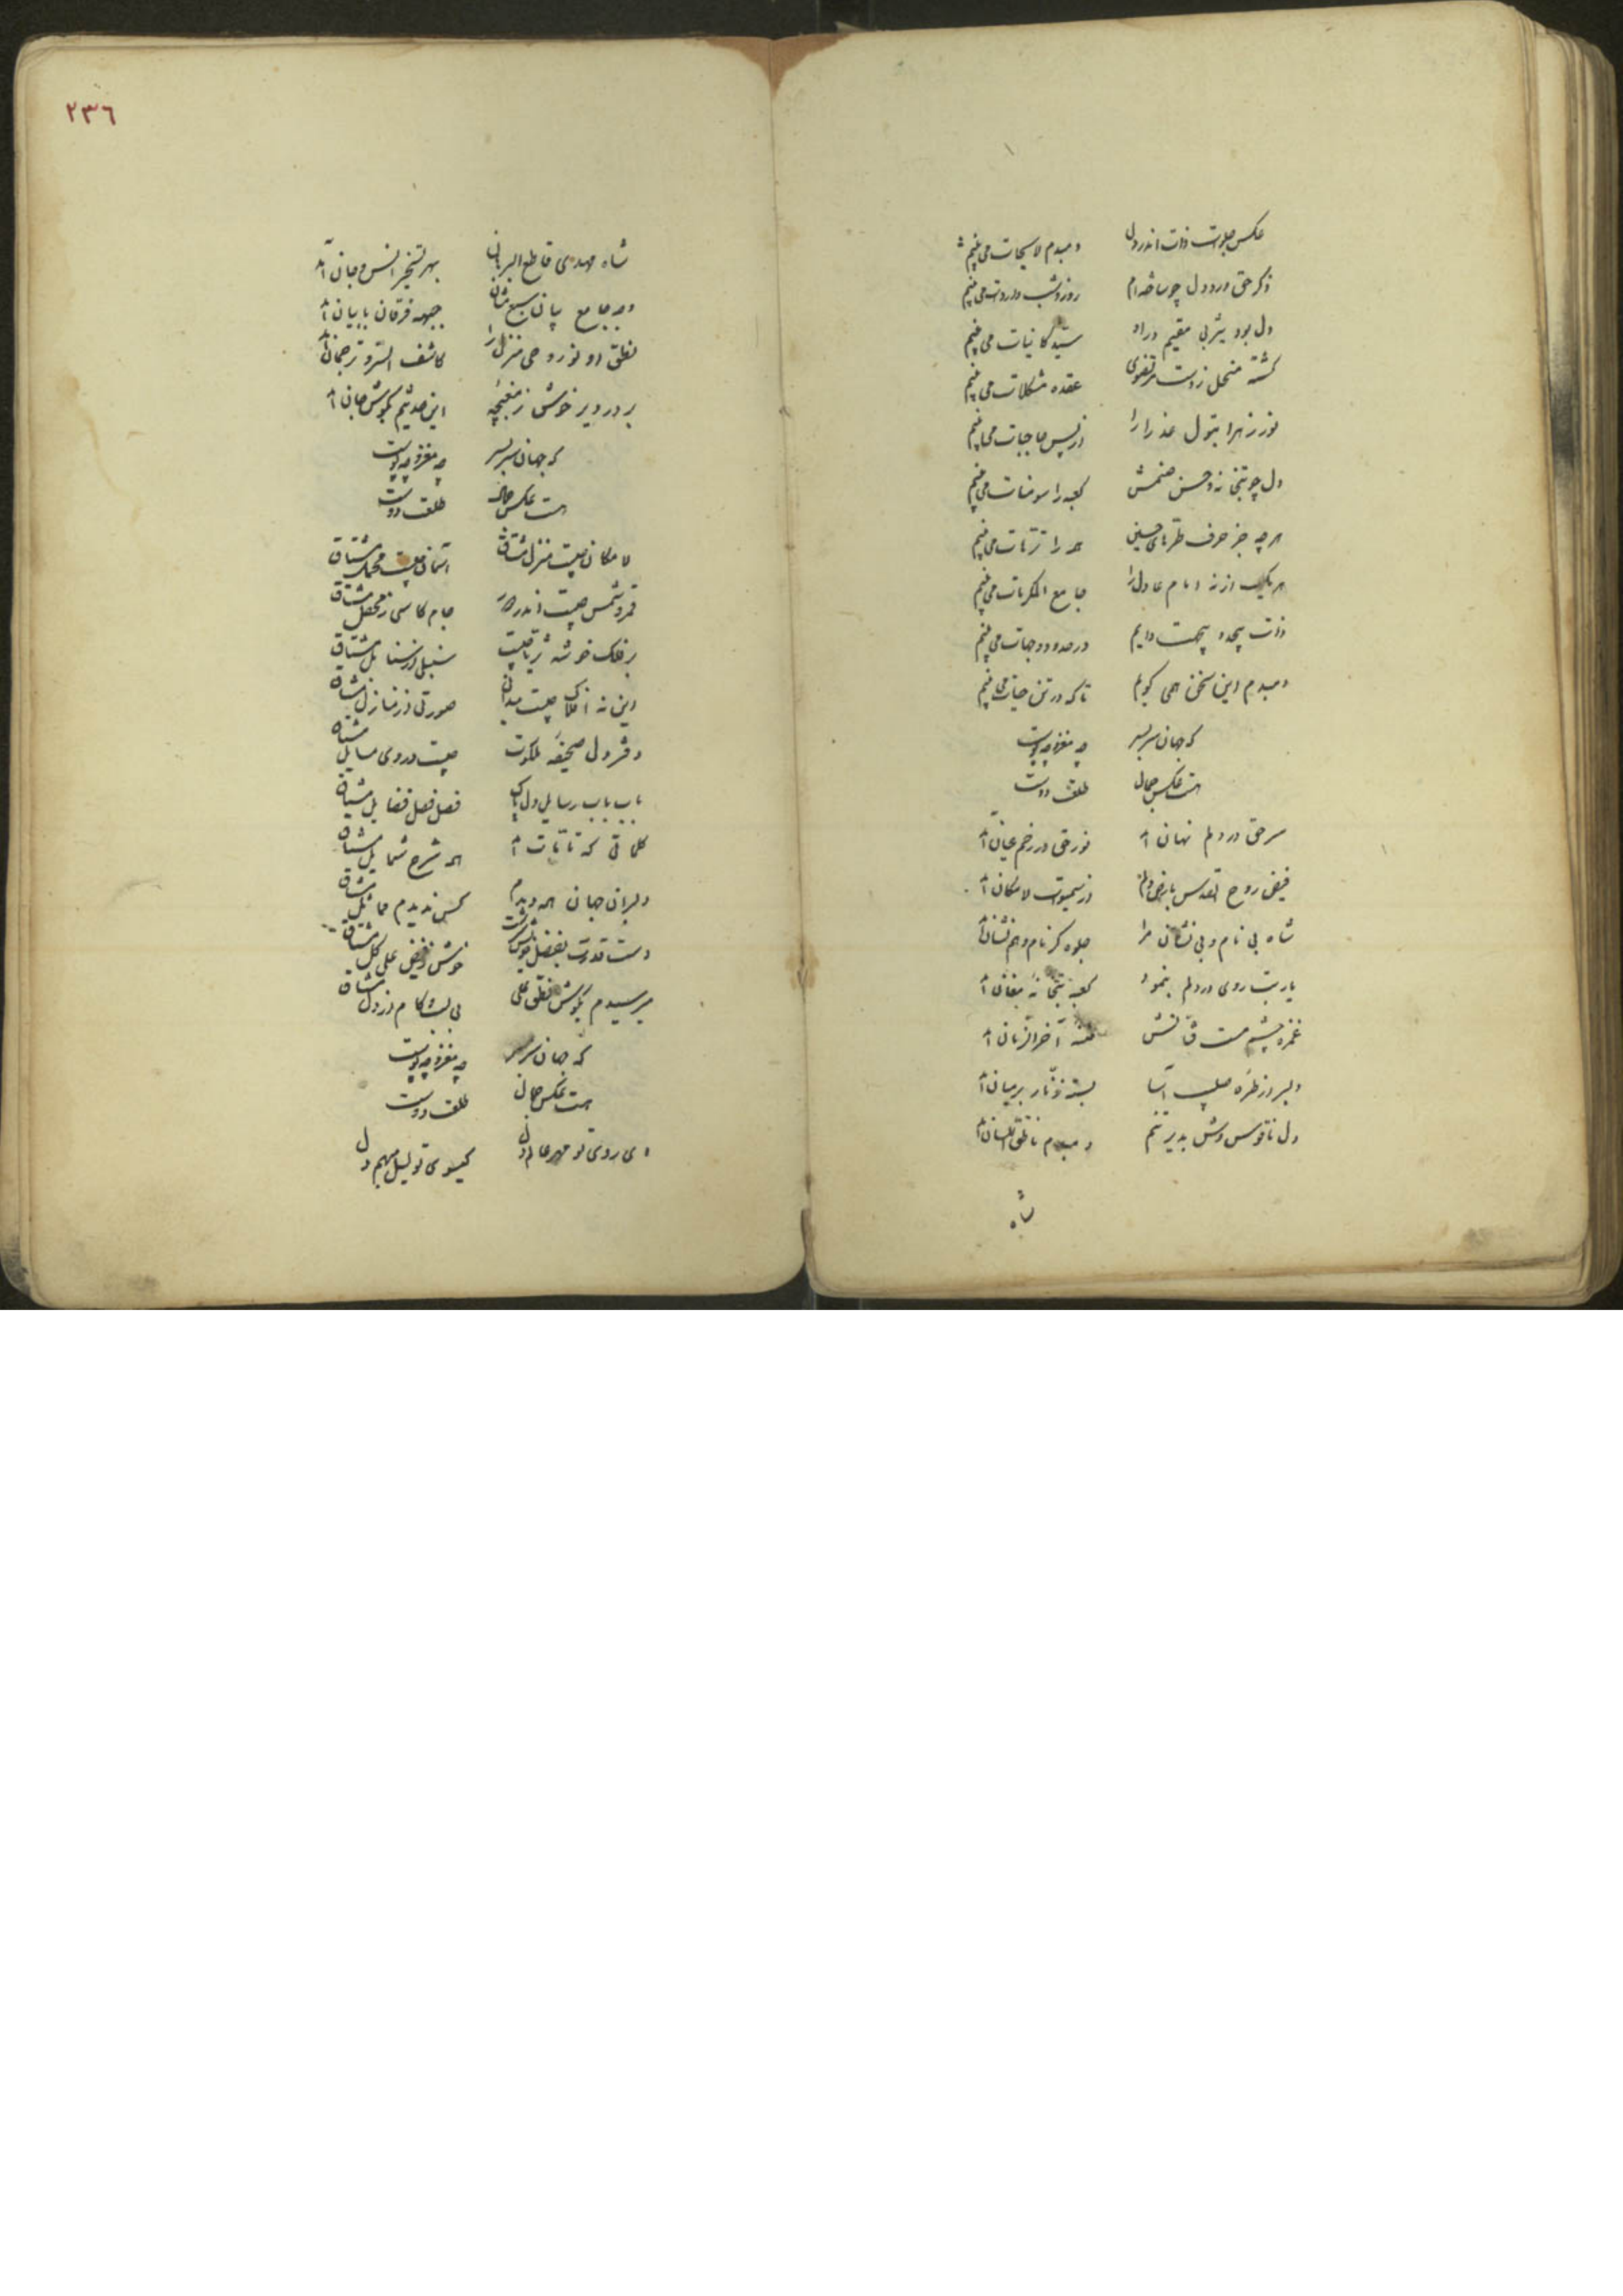 عکس جلوات ذات اندر دل دمبدم لایحات می بینم
ذکر حق ورد دل چو ساخته ام روز و شب واردات می بینم
دل بود یثربی مقیم در او سید کاینات می بینم
گشته منحل ز دست مرتضوی عقده مشکلات می بینم
نور زهرا بتول عذرا را از پس حاجبات می بینم
دل چو بتخانه و حسن صنمش کعبه را سومنات می بینم
هر چه جز حرف طره های حسین همه را ترهات می بینم
هر یک از نه امام عادل را جامع المکرمات می بینم
ذات بیحد و بیجهت دایم در حدود و جهات می بینم
دمبدم این سخن همی گویم تا که در تن حیات می بینم
که جهان سربسر چه مغز و چه پوست
هست عکس جمال طلعت دوست
سر حق در دلم نهان آمد نور حق در رخم عیان آمد
فیض روح القدس بارض دلم از سموات لامکان آمد
شاه بی نام و بی نشان مرا جلوه گر نام و هم نشان آمد
یار بت روی در دلم بنمود کعبه بتخانه مغان آمد
غمزه چشم مست فتانش فتنه آخر الزمان آمد
دلبر از طره صلیب آسا بسته زنار بر میان آمد
دل ناقوس وش بدیر تنم دمبدم ناطق اللسان آمد
شاه
٢٣٦
شاه مهدی قاطع البرهان بهر تسخیر انس و جان آمد
وجه جامع بیان سبع مثان جبهه فرقان با بیان آمد
نطق او نور وحی منزل را کاشف السر و ترجمان آمد
بر در دیر خوش ز مغبچه این حدیثم بگوش جان آمد
که جهان سربسر چه مغز و چه پوست
هست عکس جمال طلعت دوست
لا مکان چیست منزل مشتاق آسمان چیست محمل مشتاق
قمر و شمس چیست اندر جام کاسی ز محفل مشتاق
بر فلک خوشه ثریا چیست سنبلی از سنابل مشتاق
این نه افلاک چیست میدانی صورتی از منازل مشتاق
دفتر دل صحیفه ملکوت چیست در وی مسایل مشتاق
باب باب رسایل دل پاک فصل فصل فضایل مشتاق
کلماتی که تامات آمد همه شرح شمایل مشتاق
دلبران جهان همه دیدم کس ندیدم مماثل مشتاق
دست قدرت بفضل خویش سرشت خوش ز فیض علی گل مشتاق
میرسیدم بگوش نطق علی بی لب و کام از دل مشتاق
که جهان سربسر چه مغز و چه پوست
هست عکس جمال طلعت دوست
ای روی تو مهر عالم دل گیسوی تو لیل مبهم دل